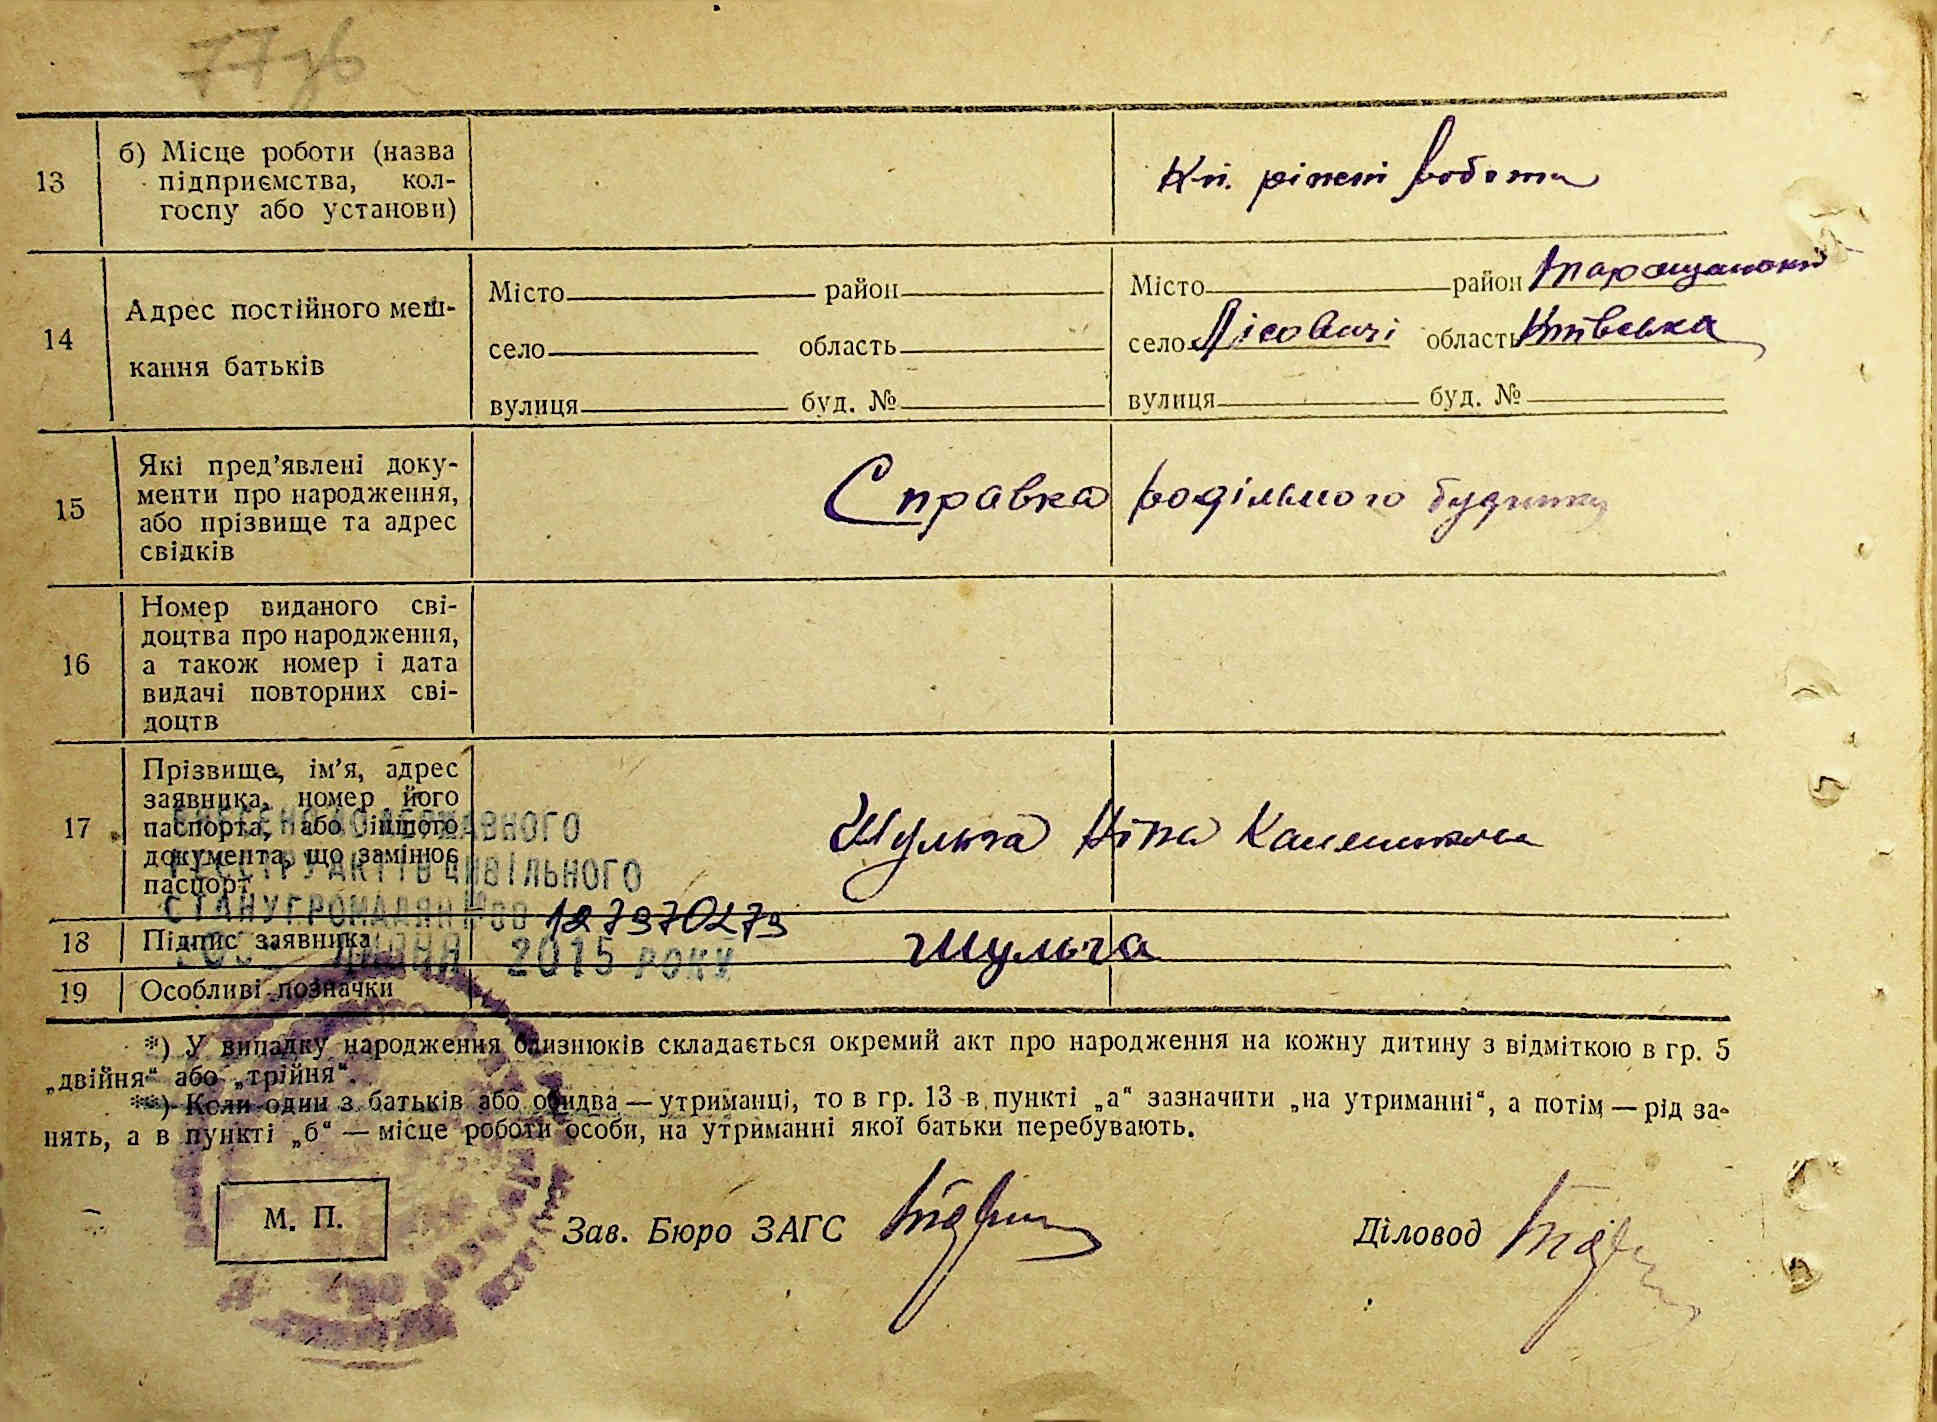 77
13 б) Місце роботи (назва
підприємства, кол-
госпу або установи)
14 Адрес постійного меш-
кання батьків
Місто район
село область
вулиця буд. №
Місто район Таращанський
село Лісовичі область Київська
вулиця буд. №
15 Які пред'явлені доку-
менти про народження,
або прізвище та адрес
свідків
Справка родільного будинку
16 Номер виданого сві-
доцтва про народження,
а також номер і дата
видачі повторних сві-
доцтв
17 Прізвище, ім'я, адрес
заявника, номер його
паспорта, або іншого
документа, що замінює
паспорт
Шульга Ніна
ВНЕСЕНО ДО ДЕРЖАВНОГО
РЕЄСТРУ АКТІВ ЦИВІЛЬНОГО
СТАНУ ГРОМАДЯН №00 127970279
2015 РОКУ
18 Підпис заявника Шульга
19 Особливі позначки
*) У випадку народження близнюків складається окремий акт про народження на кожну дитину з відміткою в гр. 5
„двійня“ або „трійня“.
**) Коли один з батьків або обидва — утриманці, то в гр. 13 в пункті „а“ зазначити „на утриманні“, а потім — рід за-
нять, а в пункті „б“ — місце роботи особи, на утриманні якої батьки перебувають.
М. П.
Зав. Бюро ЗАГС
Діловод